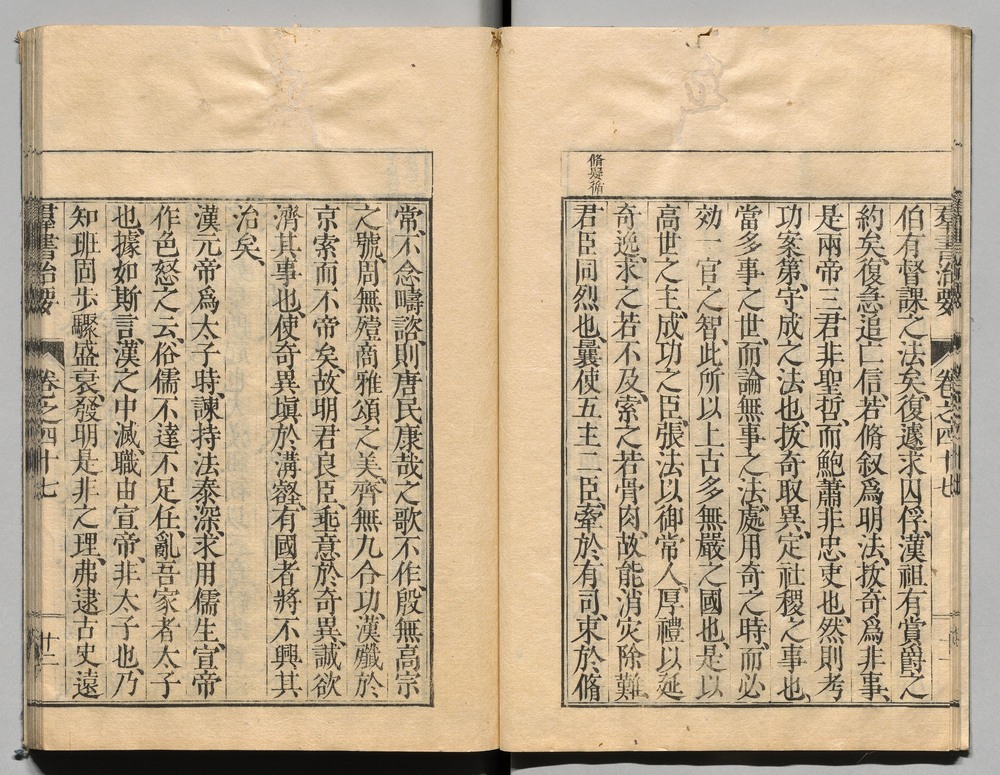 脩疑循
羣書治要 卷之四十七
伯有督課之法矣、復遽求囚俘、漢祖有賞爵之
約矣、復急追亡信、若脩叙爲明法、拔奇爲非事、
是兩帝三君非聖哲、而鮑蕭非忠吏也、然則考
功案第、守成之法也、拔奇取異、定社稷之事也、
當多事之世、而論無事之法、處用奇之時、而必
効一官之智、此所以上古多無嚴之國也、是以
高世之主、成功之臣、張法以御常人、厚禮以延
奇逸、求之若不及、索之若骨肉、故能消灾除難、
君臣同烈也、曩使五主二臣、牽於有司、束於脩
常、不念疇諮、則唐民康哉之歌不作、殷無高宗
之號、周無殪商雅頌之美、齊無九合功、漢殲於
京索而不帝矣、故明君良臣、垂意於奇異、誠欲
濟其事也、使奇異塡於溝壑、有國者將不興其
治矣、
漢元帝爲太子時、諫持法泰深、求用儒生、宣帝
作色怒之云、俗儒不達不足任、亂吾家者太子
也、據如斯言、漢之中滅、職由宣帝、非太子也、乃
知班固步驟盛衰、發明是非之理、弗逮古史遠
羣書治要 卷之四十七 廿二